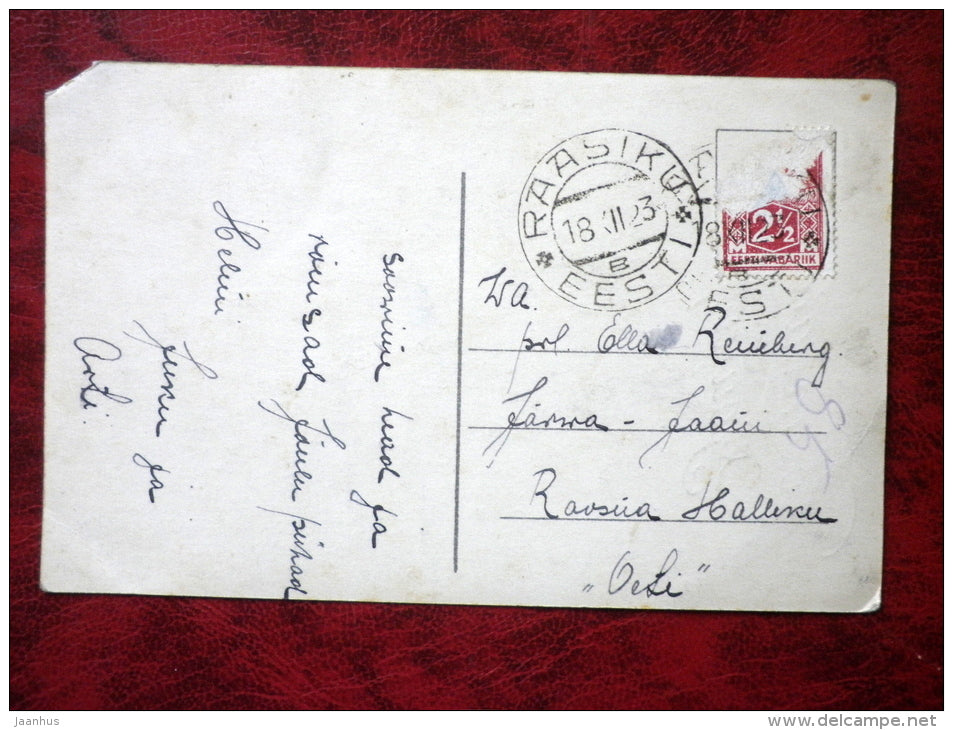 Soovime head ja
rõmsad Jõulu pühad
Helmi
Juku ja
Arti.
RAASIKU
18 XII 23
B
EESTI
2½
M M
EESTI VABARIIK
B
EESTI
Wa.
prl. Ella Reinberg.
Järwa - Jaani
Ravsiia Halliku
"Oeti"
85
Jaanhus
www.delcampe.net